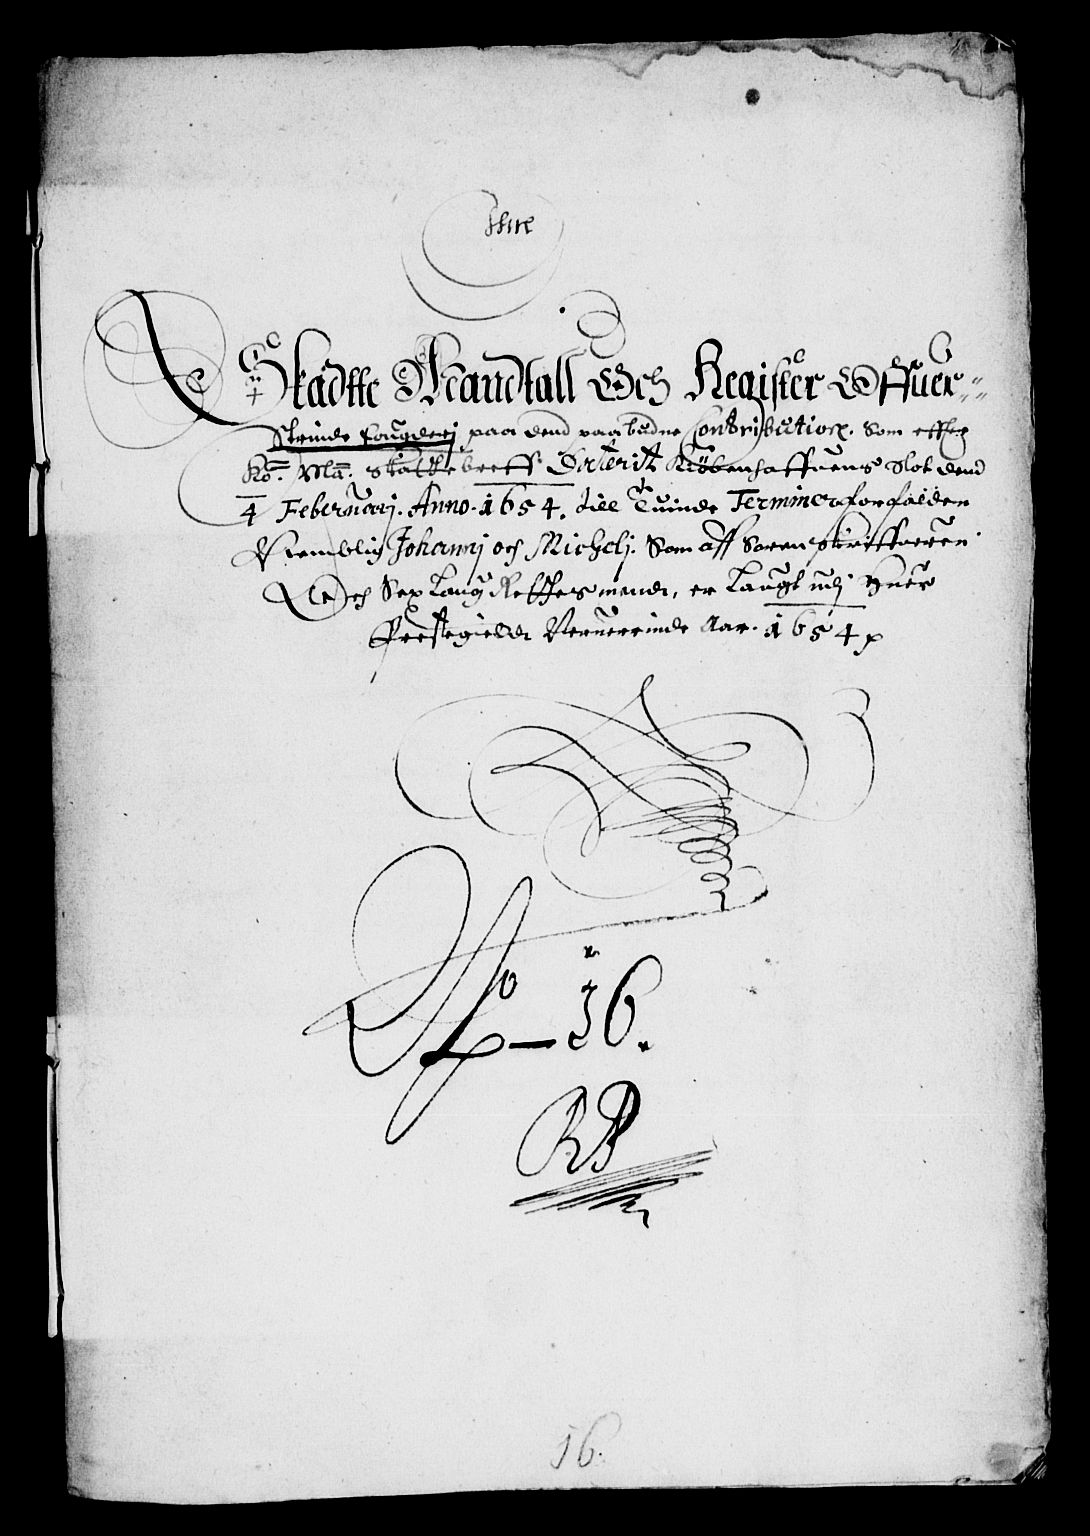 Skadtte Mandtall Och Register Offuer
Strinde fougderj, paa dend paabudne Contribution. Som effter
Ko: Ma: Skattebreff Daterit Kiøbenhaffuens Slot dend
4 Februarj. Anno. 1654. till Tuinde Terminer forfalden
Nemblig Johannj och Michelj. Som aff Sorenskriffueren
Och Sex Laug Rettes mend, er Laugt udj Huer
Prestegield Neruerrinde Aar. 1654
No - 16.
RB
16.